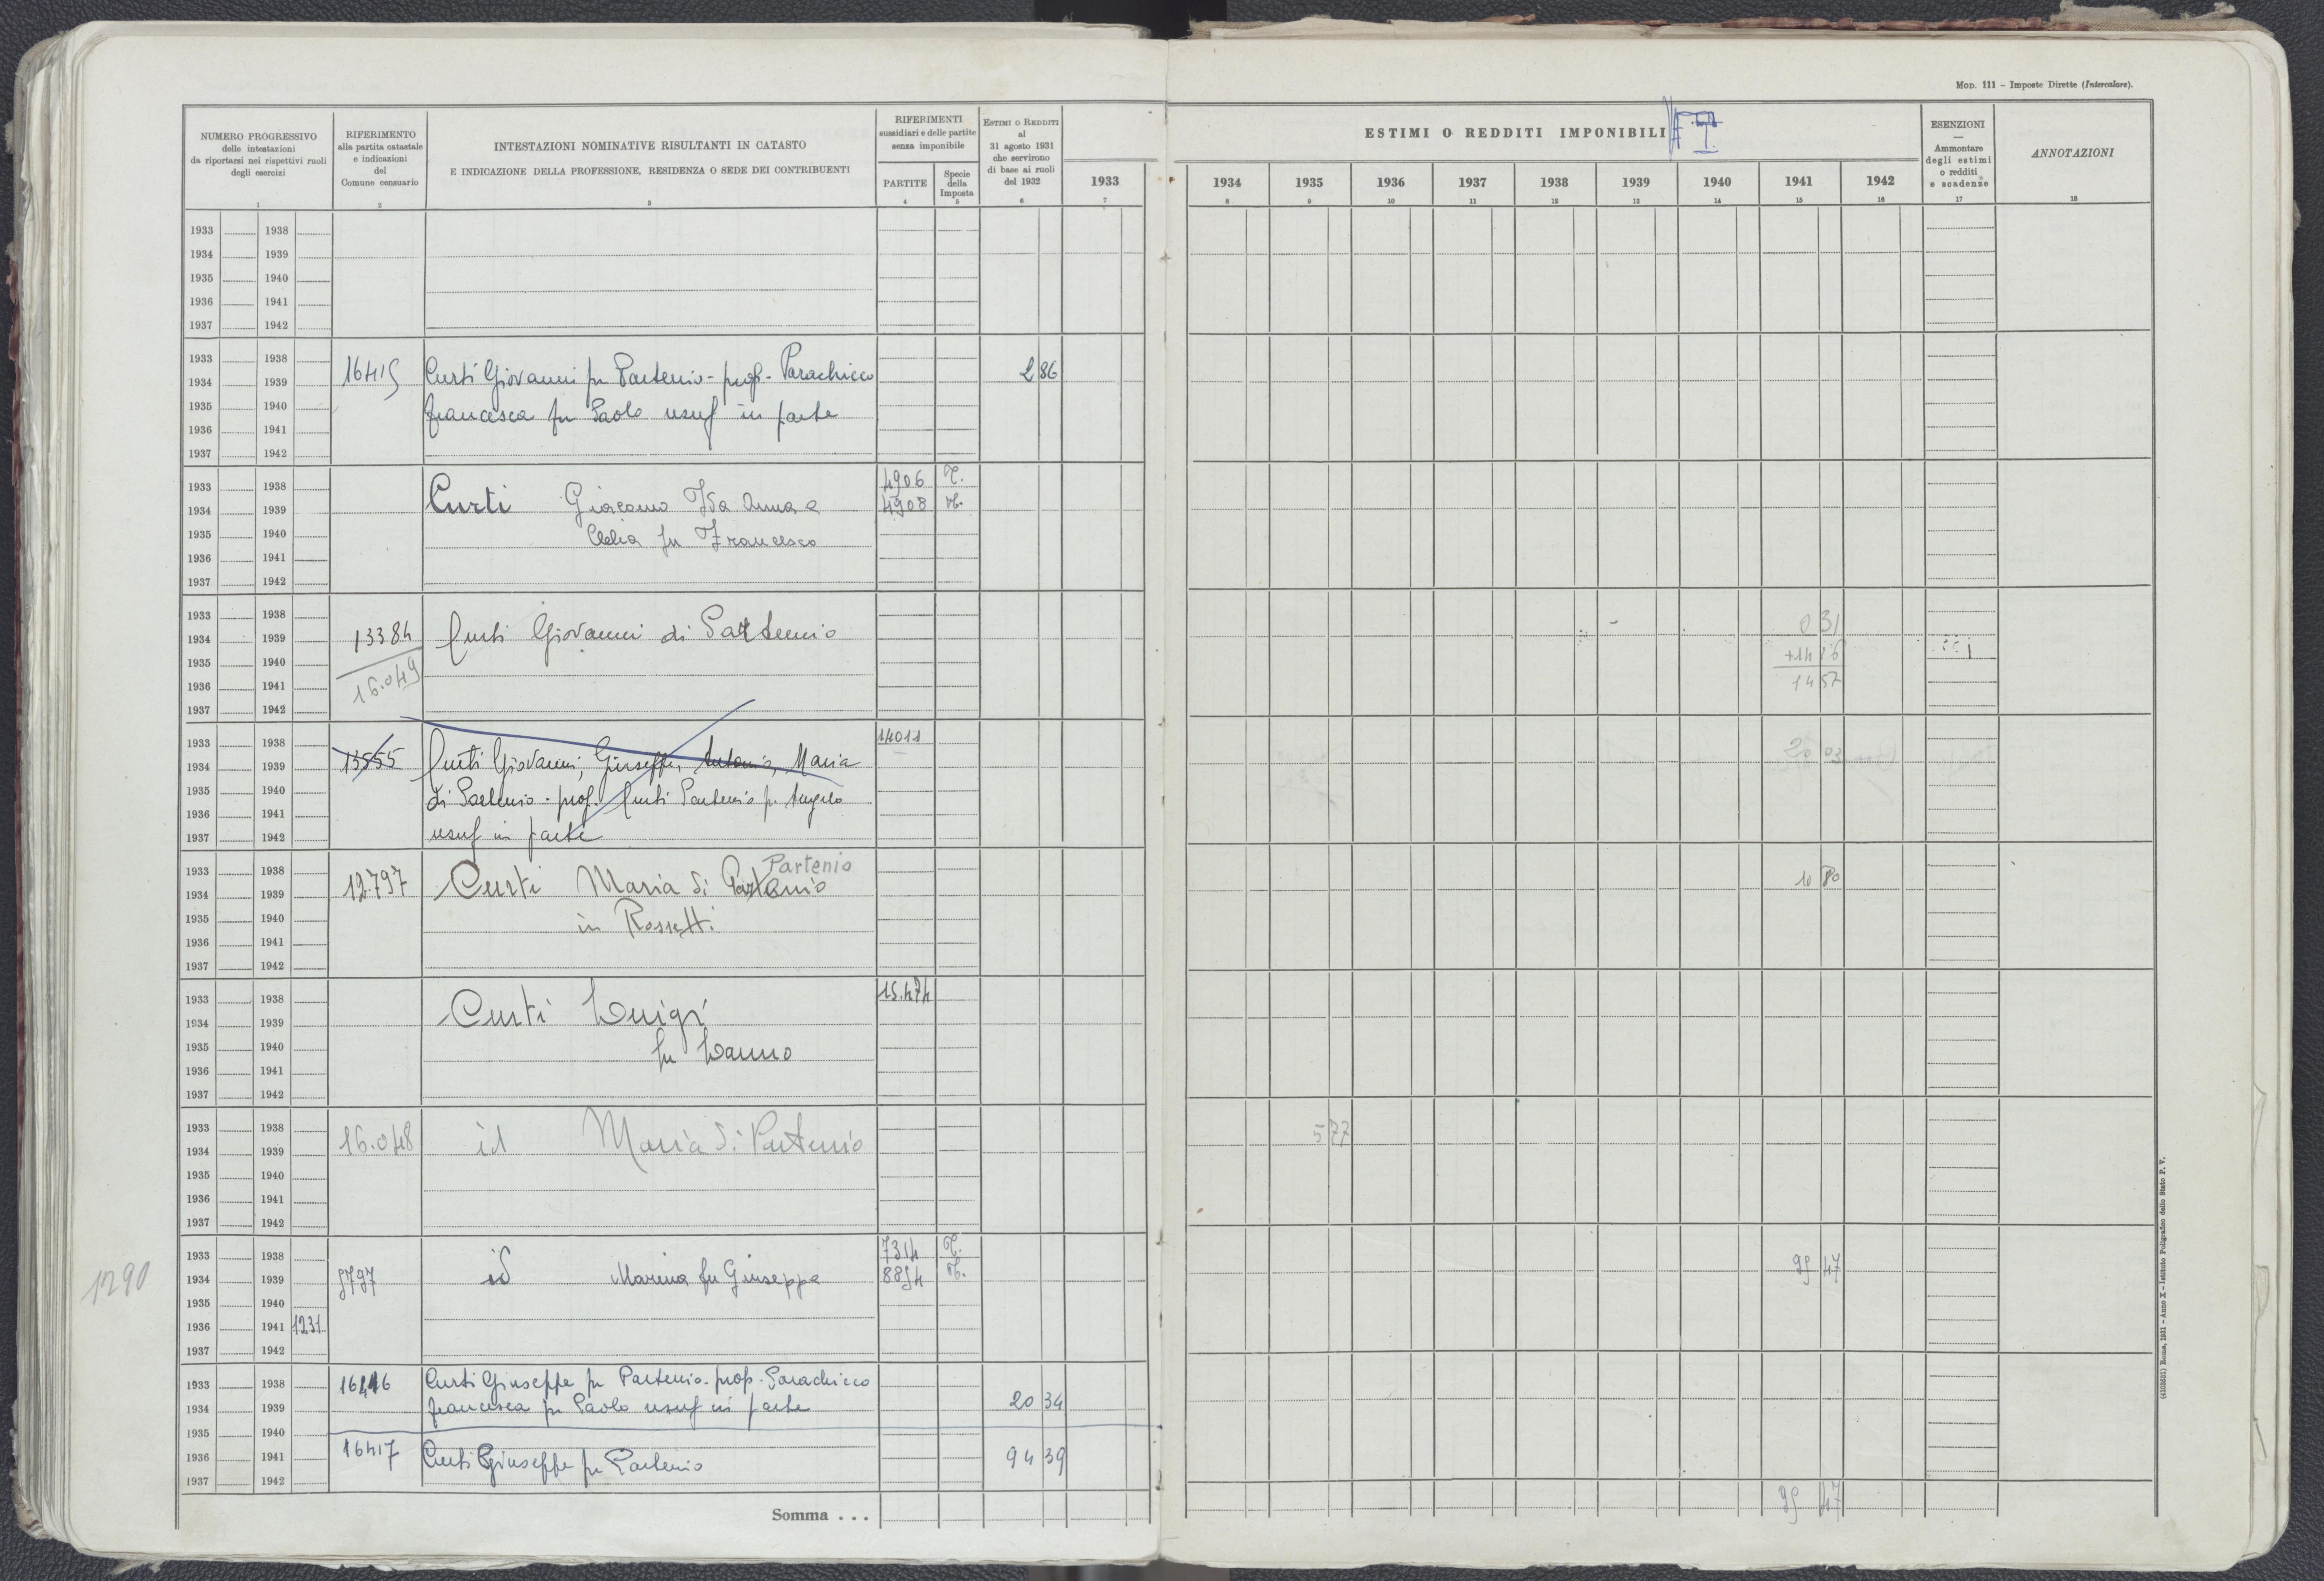 Mod. 111 – Imposte Dirette (Intercalare).
NUMERO PROGRESSIVO
delle intestazioni
da riportarsi nei rispettivi ruoli
degli esercizi
1
RIFERIMENTO
alla partita catastale
e indicazioni
del
Comune censuario
2
INTESTAZIONI NOMINATIVE RISULTANTI IN CATASTO
E INDICAZIONE DELLA PROFESSIONE, RESIDENZA O SEDE DEI CONTRIBUENTI
3
RIFERIMENTI
sussidiari e delle partite
senza imponibile
PARTITE
4
Specie
della
Imposta
5
Estimi o Redditi
al
31 agosto 1931
che servirono
di base ai ruoli
del 1932
6
1933
7
ESTIMI O REDDITI IMPONIBILI
1934 1935 1936 1937 1938 1939 1940 1941 1942
8 9 10 11 12 13 14 15 16
ESENZIONI
—
Ammontare
degli estimi
o redditi
e scadenze
17
ANNOTAZIONI
18
1933 1938
1934 1939
1935 1940
1936 1941
1937 1942
1933 1938
1934 1939 16415 Curti Giovanni fu Partenio - prop - Parachicco 2 86
1935 1940 francesca fu Paolo usuf in parte
1936 1941
1937 1942
1933 1938 4906 T.
1934 1939 Curti Giacomo Ida Anna e 4908
1935 1940 Clelia fu Francesco
1936 1941
1937 1942
1933 1938 0 31
1934 1939 13384 Curti Giovanni di Partenio
1935 1940 +14 26
1936 1941 16.049 14 57
1937 1942
1933 1938 14011
1934 1939 13555 Curti Giovanni, Giuseppe, Antonio, Maria 20 03
1935 1940 di Partenio - prop. Curti Partenio fu Angelo
1936 1941
1937 1942 usuf in parte
1933 1938 Partenio
1934 1939 12797 Curti Maria di Partenio 10 80
1935 1940 in Rossetti
1936 1941
1937 1942
1933 1938 15.474
1934 1939 Curti Luigi
1935 1940 fu
1936 1941
1937 1942
1933 1938 5 77
1934 1939 16.048 id Maria di Partenio
1935 1940
1936 1941
1937 1942
1933 1938 7314 T.
1290 1934 1939 9797 id Marina fu Giuseppe 8894 95 47
1935 1940
1936 1941 1231
1937 1942
1933 1938 Curti Giuseppe fu Partenio - prop - Parachicco
1934 1939 francesca fu Paolo usuf in parte 20 34
1935 1940
1936 1941 16417 Curti Giuseppe fu Partenio 94 39
1937 1942
Somma . . . 95 47
(4103531) Roma, 1931 – Anno X – Istituto Poligrafico dello Stato P. V.